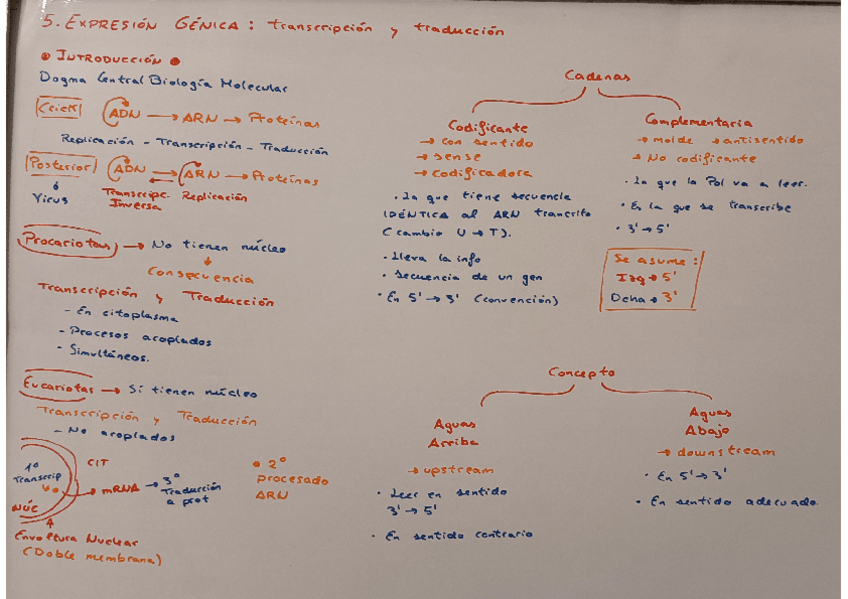 5. EXPRESIÓN GÉNICA: transcripción y traducción
• INTRODUCCIÓN •
Dogma Central Biología Molecular
Crick ADN → ARN → Proteínas
Replicación - Transcripción - Traducción
Posterior ADN → ARN → Proteínas
Virus
Transcripc. Replicación
Inversa
Procariotas → No tienen núcleo
Consecuencia
Transcripción y Traducción
- En citoplasma
- Procesos acoplados
- Simultáneos.
Eucariotas → Sí tienen núcleo
Transcripción y Traducción
- No acoplados
1º
Transcrip
NÚC
CIT
→ mRNA → 3º
Traducción
a prot
• 2º
procesado
ARN
Envoltura Nuclear
(Doble membrana)
Cadenas
Codificante
→ con sentido
→ sense
→ codificadora
• La que tiene secuencia
IDÉNTICA al ARN trancrito
(cambio U → T).
• Lleva la info
• Secuencia de un gen
• En 5' → 3' (convención)
Complementaria
→ molde → antisentido
→ No codificante
• La que la Pol va a leer.
• Es la que se transcribe
• 3' → 5'
Se asume:
Izq → 5'
Dcha → 3'
Concepto
Aguas
Arriba
→ upstream
• Leer en sentido
3' → 5'
• En sentido contrario
Aguas
Abajo
→ downstream
• En 5' → 3'
• En sentido adecuado.